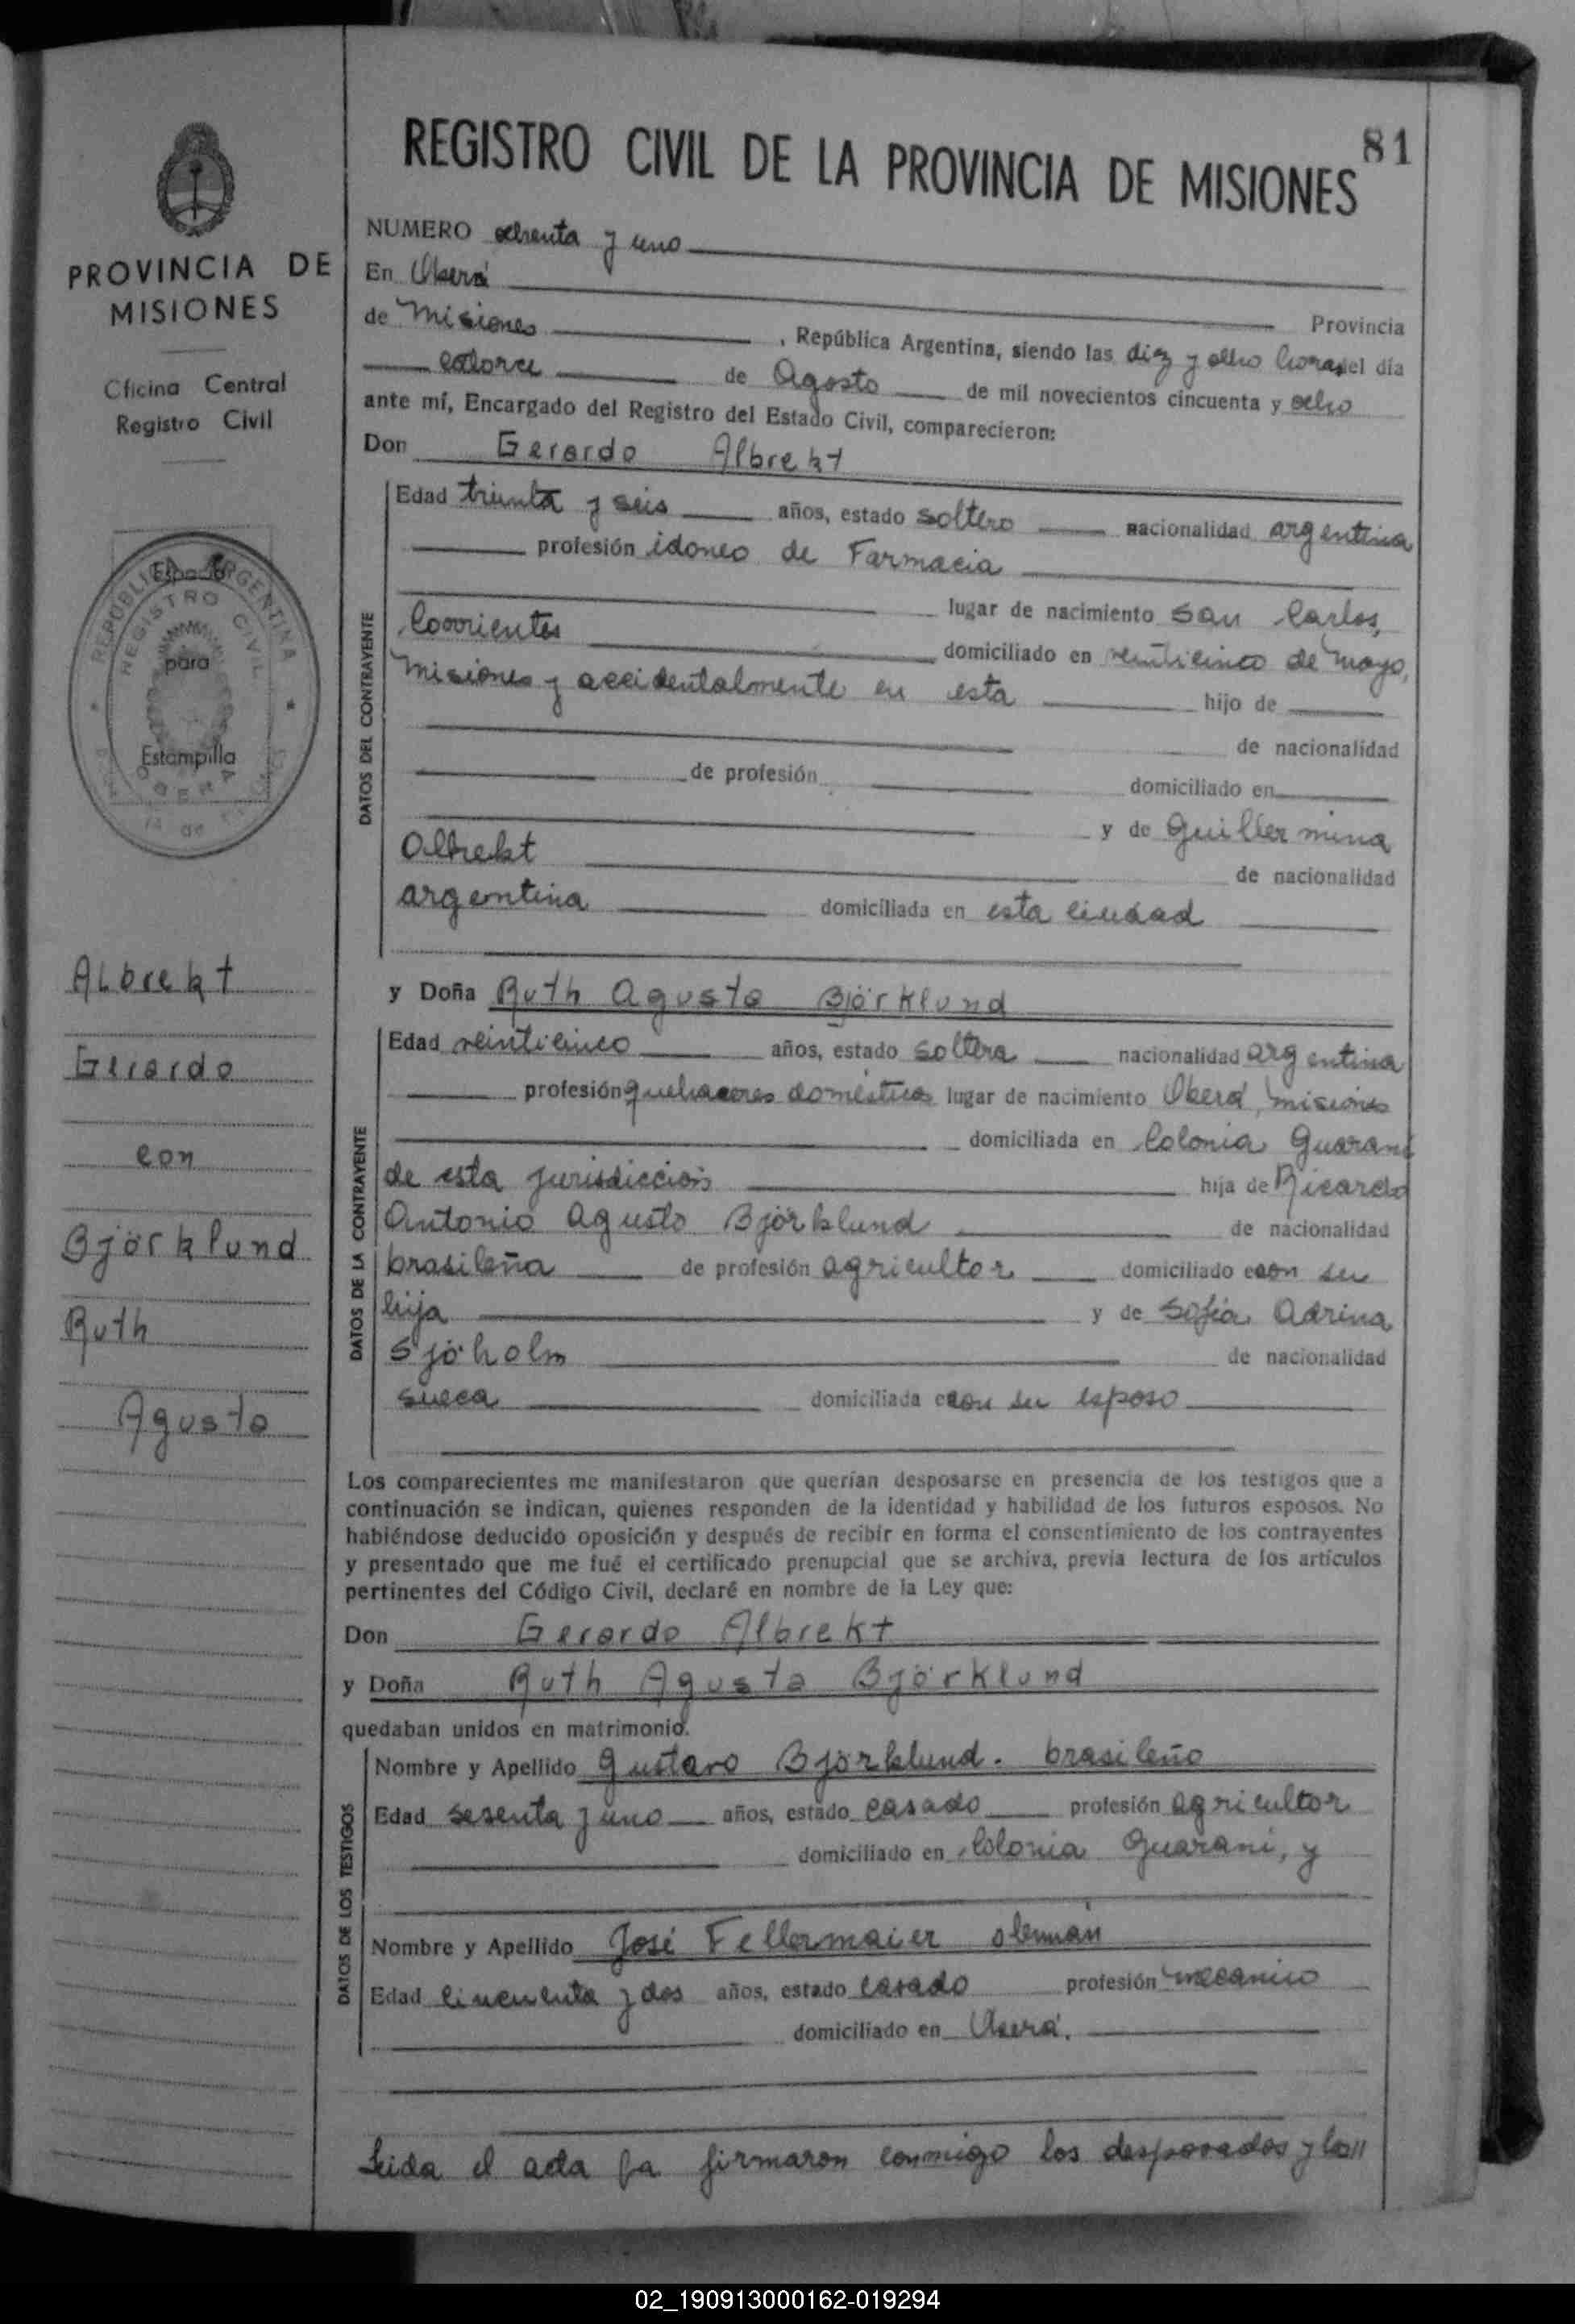 81
REGISTRO CIVIL DE LA PROVINCIA DE MISIONES
PROVINCIA DE
MISIONES
Oficina Central
Registro Civil
REPUBLICA ARGENTINA
REGISTRO CIVIL
Espacio
para
Estampilla
OBERA
Albrekt
Gerardo
con
Björklund
Ruth
Agusta
NUMERO ochenta y uno
En Oberá
Provincia
de Misiones, República Argentina, siendo las diez y ocho horas del día
catorce de Agosto de mil novecientos cincuenta y ocho
ante mí, Encargado del Registro del Estado Civil, comparecieron:
Don Gerardo Albrekt
DATOS DEL CONTRAYENTE
Edad treinta y seis años, estado soltero nacionalidad argentina
profesión idoneo de Farmacia
lugar de nacimiento San Carlos,
Corrientes domiciliado en veinticinco de Mayo,
Misiones y accidentalmente en esta hijo de
de nacionalidad
de profesión domiciliado en
y de Guillermina
Albrekt de nacionalidad
argentina domiciliada en esta ciudad
y Doña Ruth Agusta Björklund
DATOS DE LA CONTRAYENTE
Edad veinticinco años, estado soltera nacionalidad argentina
profesión quehaceres domésticos lugar de nacimiento Oberá, Misiones
domiciliada en Colonia Guaraní
de esta jurisdicción hija de Ricardo
Antonio Agusto Björklund de nacionalidad
brasileña de profesión agricultor domiciliado con su
hija y de Sofía Adrina
Sjöholm de nacionalidad
sueca domiciliada con su esposo
Los comparecientes me manifestaron que querían desposarse en presencia de los testigos que a
continuación se indican, quienes responden de la identidad y habilidad de los futuros esposos. No
habiéndose deducido oposición y después de recibir en forma el consentimiento de los contrayentes
y presentado que me fué el certificado prenupcial que se archiva, previa lectura de los artículos
pertinentes del Código Civil, declaré en nombre de la Ley que:
Don Gerardo Albrekt
y Doña Ruth Agusta Björklund
quedaban unidos en matrimonio.
DATOS DE LOS TESTIGOS
Nombre y Apellido Gustavo Björklund. brasileño
Edad sesenta y uno años, estado casado profesión agricultor
domiciliado en Colonia Guaraní, y
Nombre y Apellido José Fellermaier alemán
Edad cincuenta y dos años, estado casado profesión mecanico
domiciliado en Oberá.
Leida el acta la firmaron conmigo los desposados y los//
02_190913000162-019294